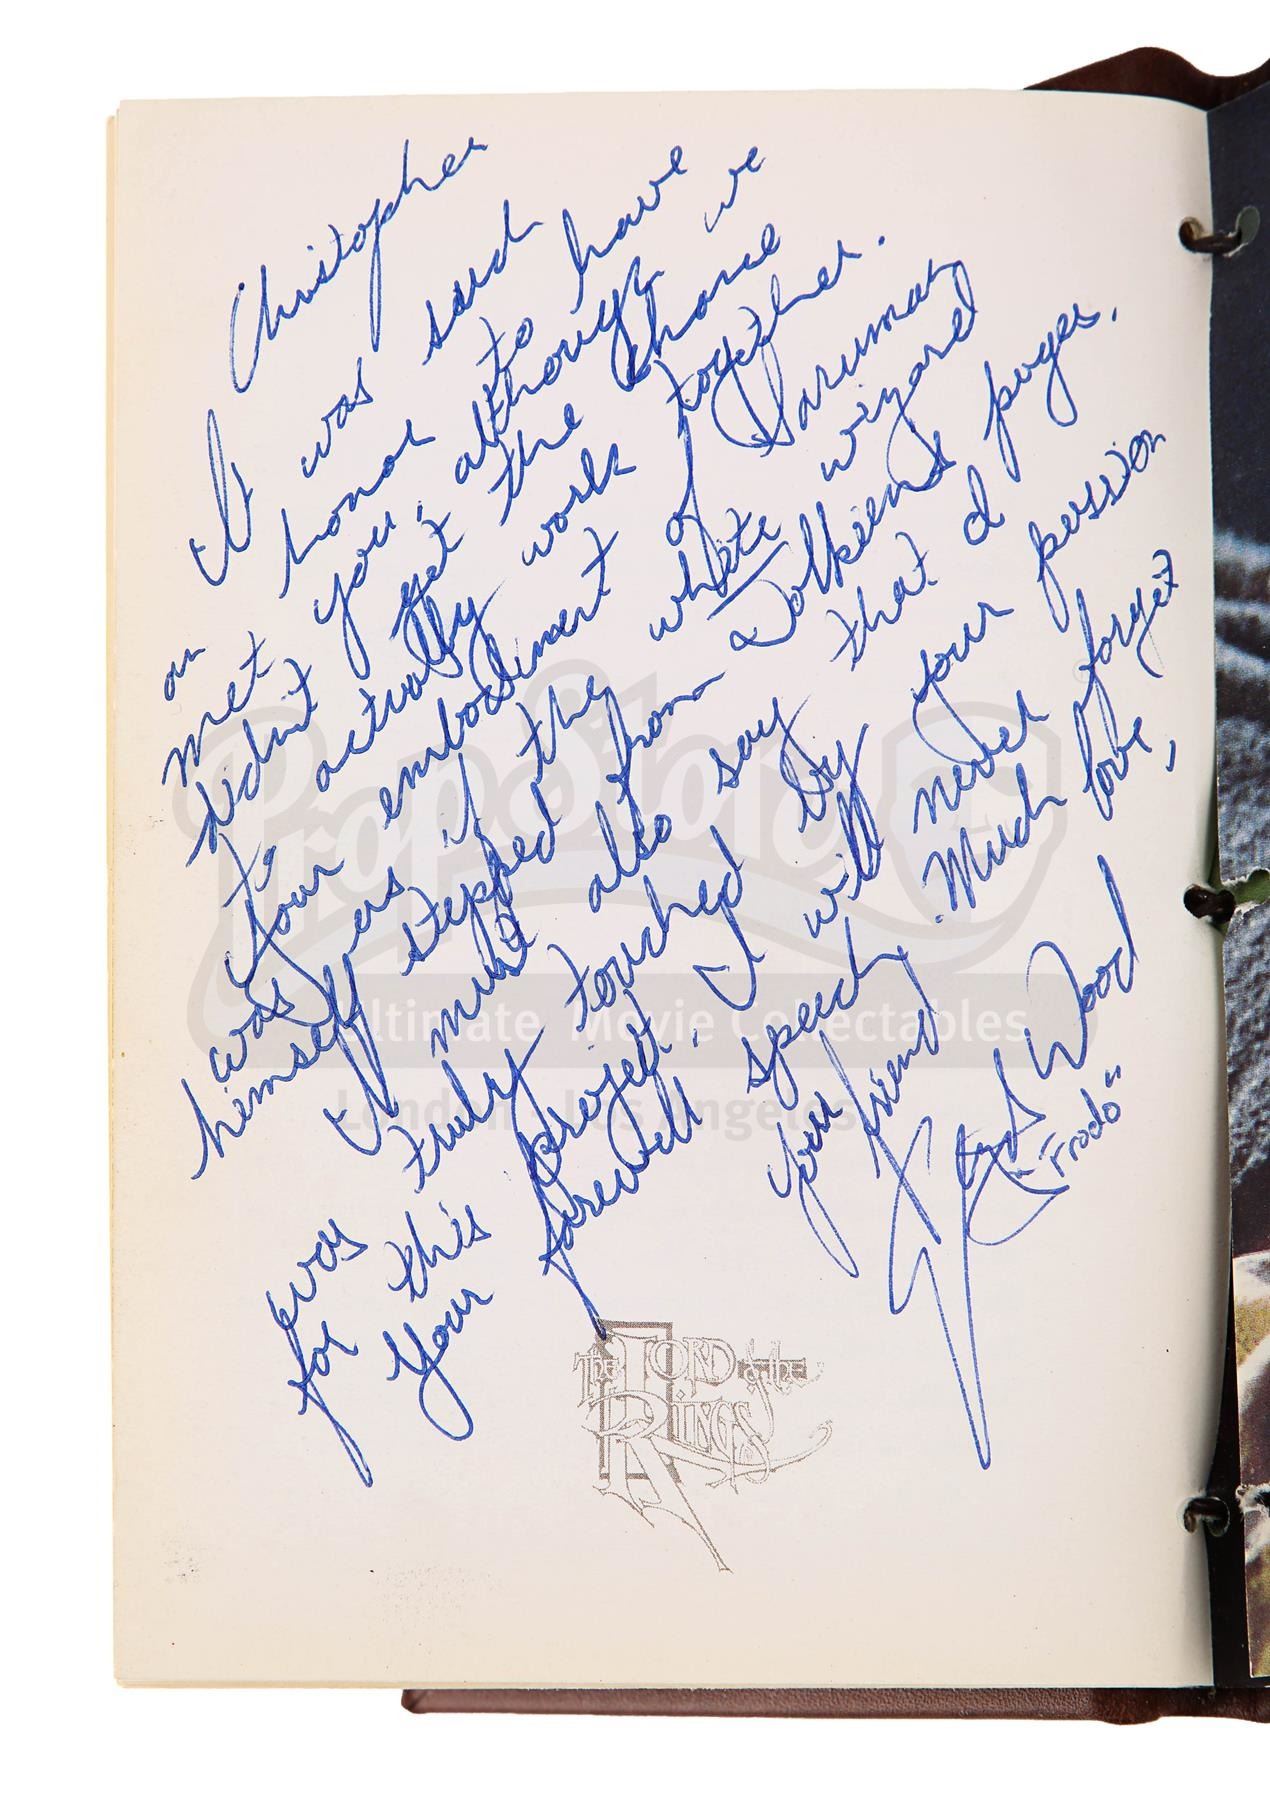 Christopher
It was such
an honor to have
met you, although we
didn't get the chance
to actually work together.
Your embodiment of Saruman
was as if the white wizard
himself stepped from Tolkien's pages.
I must also say that I
was truly touched by your passion
for this project. I will never forget
your farewell speech. Much love,
your friend
Elijah Wood
"Frodo"
THE LORD of the
RINGS
PropStore
Ultimate Movie Collectables
London Los Angeles